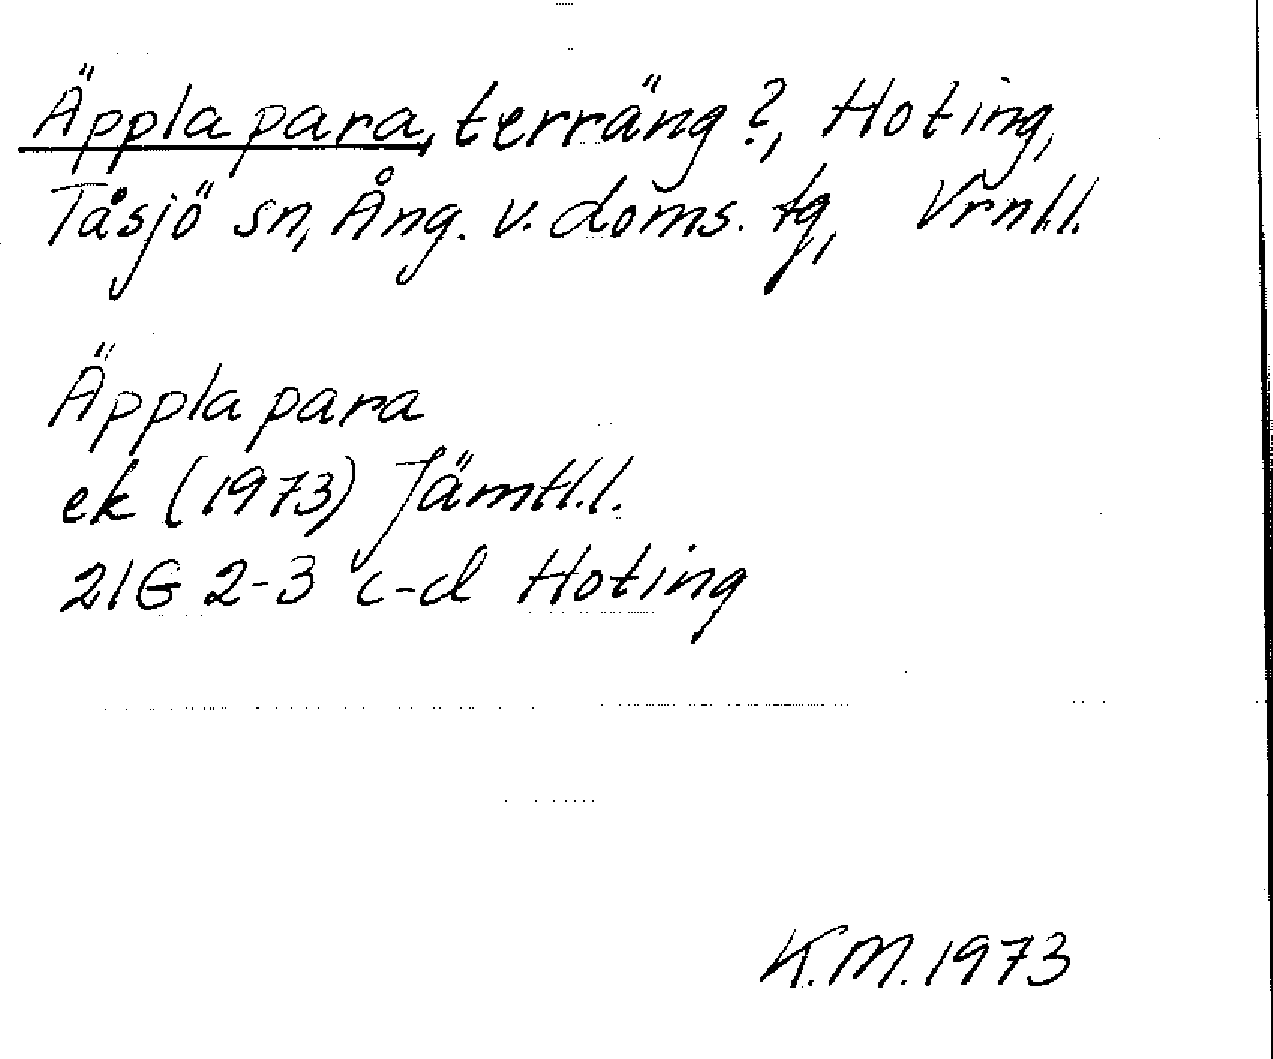 Äpplapara, terräng?, Hoting,
Tåsjö sn, Ång. v. doms. tg, Vrnl.l.
Äpplapara
ek (1973) Jämtl.l.
21G 2-3 c-d Hoting
K.M. 1973